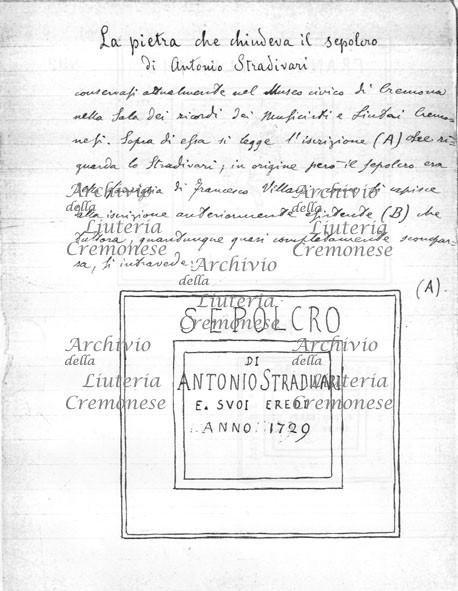 La pietra che chiudeva il sepolcro
di Antonio Stradivari
conservasi attualmente nel Museo civico di Cremona
nella Sala dei ricordi dei Musicisti e Liutai Cremo=
nesi. Sopra di essa si legge l'iscrizione (A) che ri=
guarda lo Stradivari; in origine però il sepolcro era
della famiglia di Francesco Villa come si capisce
alla iscrizione anteriormente esistente (B) che
tuttora, quantunque quasi completamente scompar=
sa, si intravede.
(A).
SEPOLCRO
DI
ANTONIO STRADIVARI
E. SVOI EREDI
ANNO 1729
Archivio
della
Liuteria
Cremonese
Archivio
della
Liuteria
Cremonese
Archivio
della
Liuteria
Cremonese
Archivio
della
Liuteria
Cremonese
Archivio
della
Liuteria
Cremonese